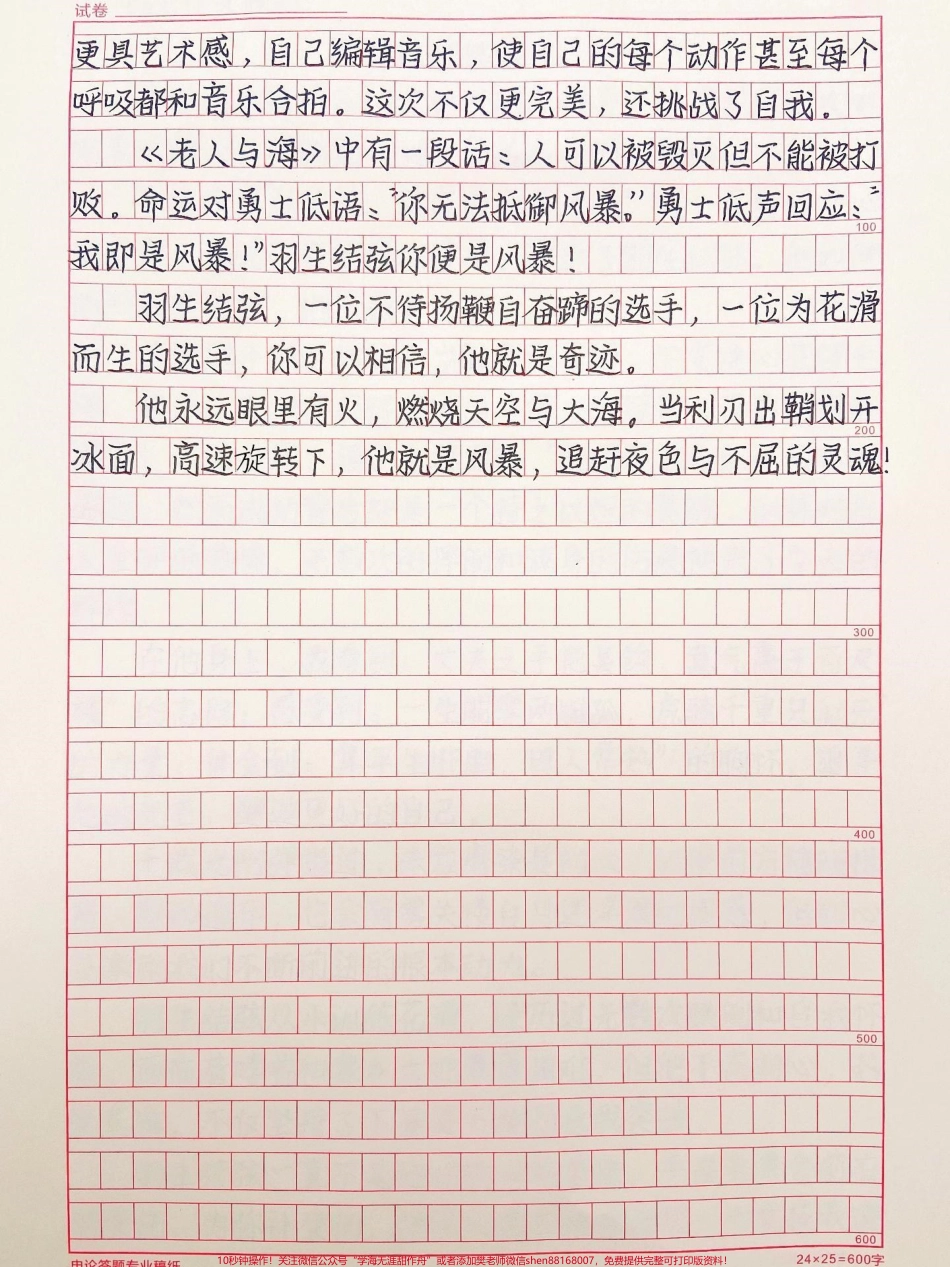 试卷
更具艺术感，自己编辑音乐，使自己的每个动作甚至每个
呼吸都和音乐合拍。这次不仅更完美，还挑战了自我。
《老人与海》中有一段话：人可以被毁灭但不能被打
败。命运对勇士低语：“你无法抵御风暴。”勇士低声回应：“
100
我即是风暴！”羽生结弦你便是风暴！
羽生结弦，一位不待扬鞭自奋蹄的选手，一位为花滑
而生的选手，你可以相信，他就是奇迹。
他永远眼里有火，燃烧天空与大海。当利刃出鞘划开
200
冰面，高速旋转下，他就是风暴，追赶夜色与不屈的灵魂！
300
400
500
600
申论答题专业稿纸 10秒钟操作！关注微信公众号“学海无涯甜作舟”或者添加樊老师微信shen88168007，免费提供完整可打印版资料！ 24×25=600字